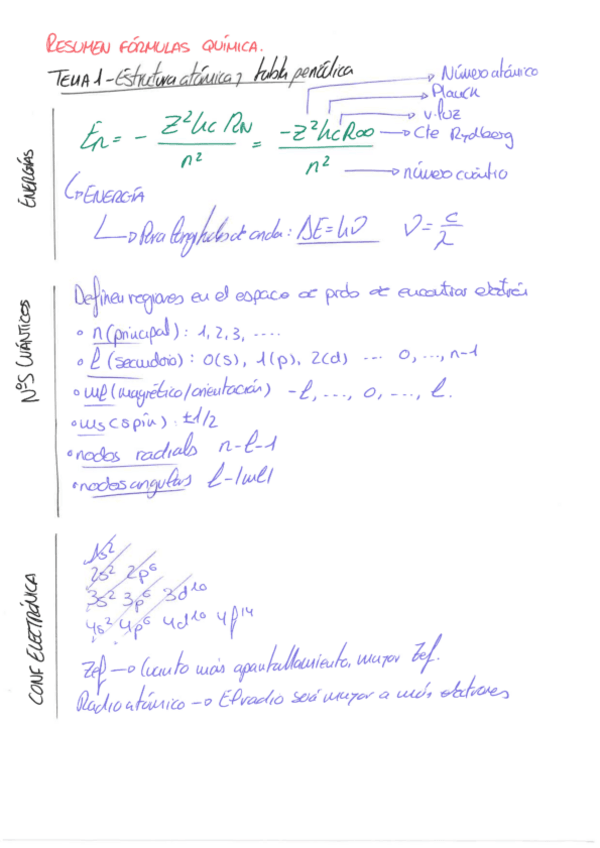 RESUMEN FÓRMULAS QUÍMICA.
TEMA 1 - Estructura atómica y tabla periódica
ENERGÍAS
En = - Z²hc RN / n² = -Z²hcR∞ / n²
Número atómico
Planck
v. luz
Cte Rydberg
número cuántico
ENERGÍA
Para longitudes de onda: ΔE = hν   ν = c/λ
NºS CUÁNTICOS
Definen regiones en el espacio de prob de encontrar electrón
• n (principal): 1, 2, 3, ....
• l (secundario): 0(s), 1(p), 2(d) ... 0, ..., n-1
• ml (magnético/orientación) -l, ..., 0, ..., l.
• ms (spin): ±1/2
• nodos radials n-l-1
• nodos angulars l-|ml|
CONF ELECTRÓNICA
1s²
2s² 2p⁶
3s² 3p⁶ 3d¹⁰
4s² 4p⁶ 4d¹⁰ 4f¹⁴
Zef → Cuanto más apantallamiento, mayor Zef.
Radio atómico → El radio será mayor a más electrones